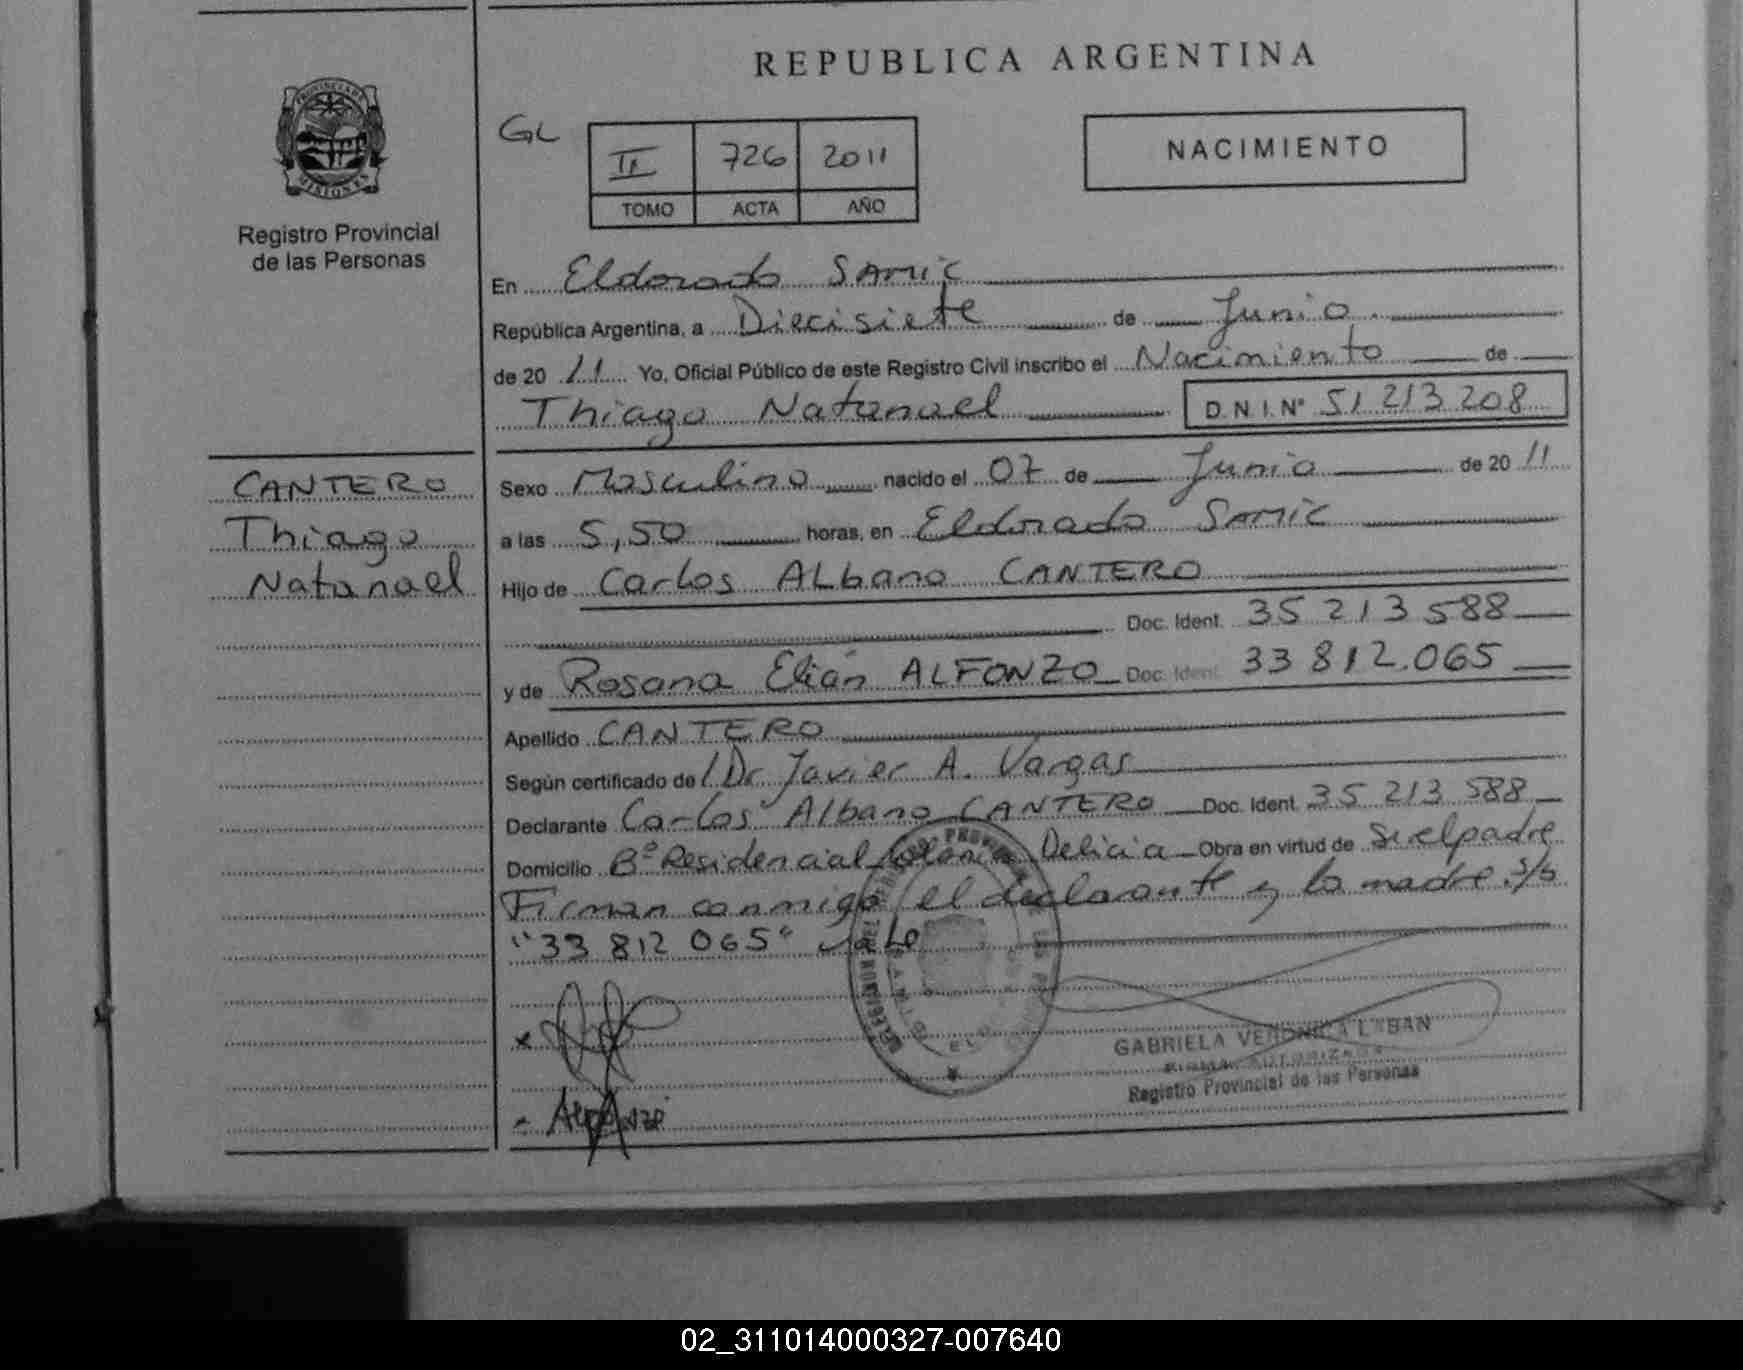 REPUBLICA ARGENTINA
PROVINCIA DE MISIONES
Registro Provincial
de las Personas
GL
II 726 2011
TOMO ACTA AÑO
NACIMIENTO
En Eldorado SAMIC
República Argentina, a Diecisiete de Junio
de 20 11 Yo, Oficial Público de este Registro Civil inscribo el Nacimiento de
Thiago Natanael D.N.I.Nº 51 213 208
CANTERO
Thiago
Natanael
Sexo Masculino nacido el 07 de Junio de 20 11
a las 5,50 horas, en Eldorado SAMIC
Hijo de Carlos ALbano CANTERO
Doc. Ident. 35 213 588
y de Rosana Elián ALFONZO Doc. Ident. 33 812.065
Apellido CANTERO
Según certificado de Dr Javier A. Vargas
Declarante Carlos Albano CANTERO Doc. Ident. 35 213 588
Domicilio Bº Residencial Colonia Delicia Obra en virtud de Si el padre
Firman conmigo el declarante y la madre. S/b
"33 812 065" vale
Alfonzo
GABRIELA VERONICA LABAN
FIRMA AUTORIZADA
Registro Provincial de las Personas
02_311014000327-007640